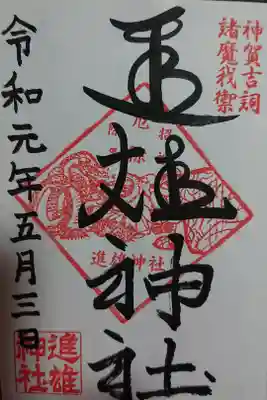 神賀吉詞
諸魔我禦
進雄神社
進雄神社
令和元年五月三日
進雄
神社